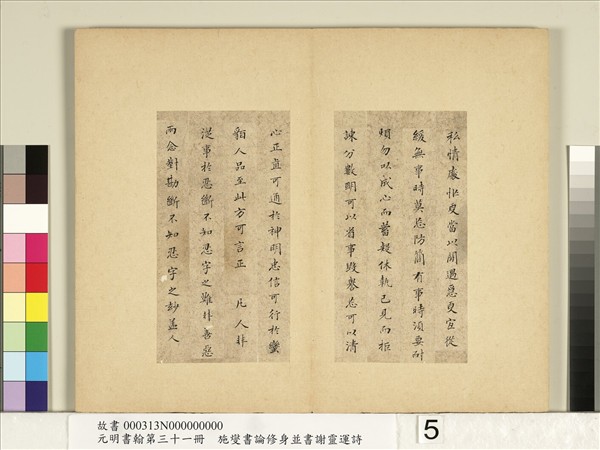 私情處恨更當以閒過惡更宜從
緩無事時莫忘防簡有事時須要耐
煩勿以成心而蓄疑休執己見而拒
諫分數明可以省事毀譽忘可以清
心正直可通於神明忠信可行於蠻
貊人品至此方可言正 凡人非
從事於忍斷不知忍字之難非善惡
兩念對勘斷不知忍字之妙蓋人
故書 000313N000000000
元明書翰第三十一冊 施燮書論修身並書謝靈運詩
5